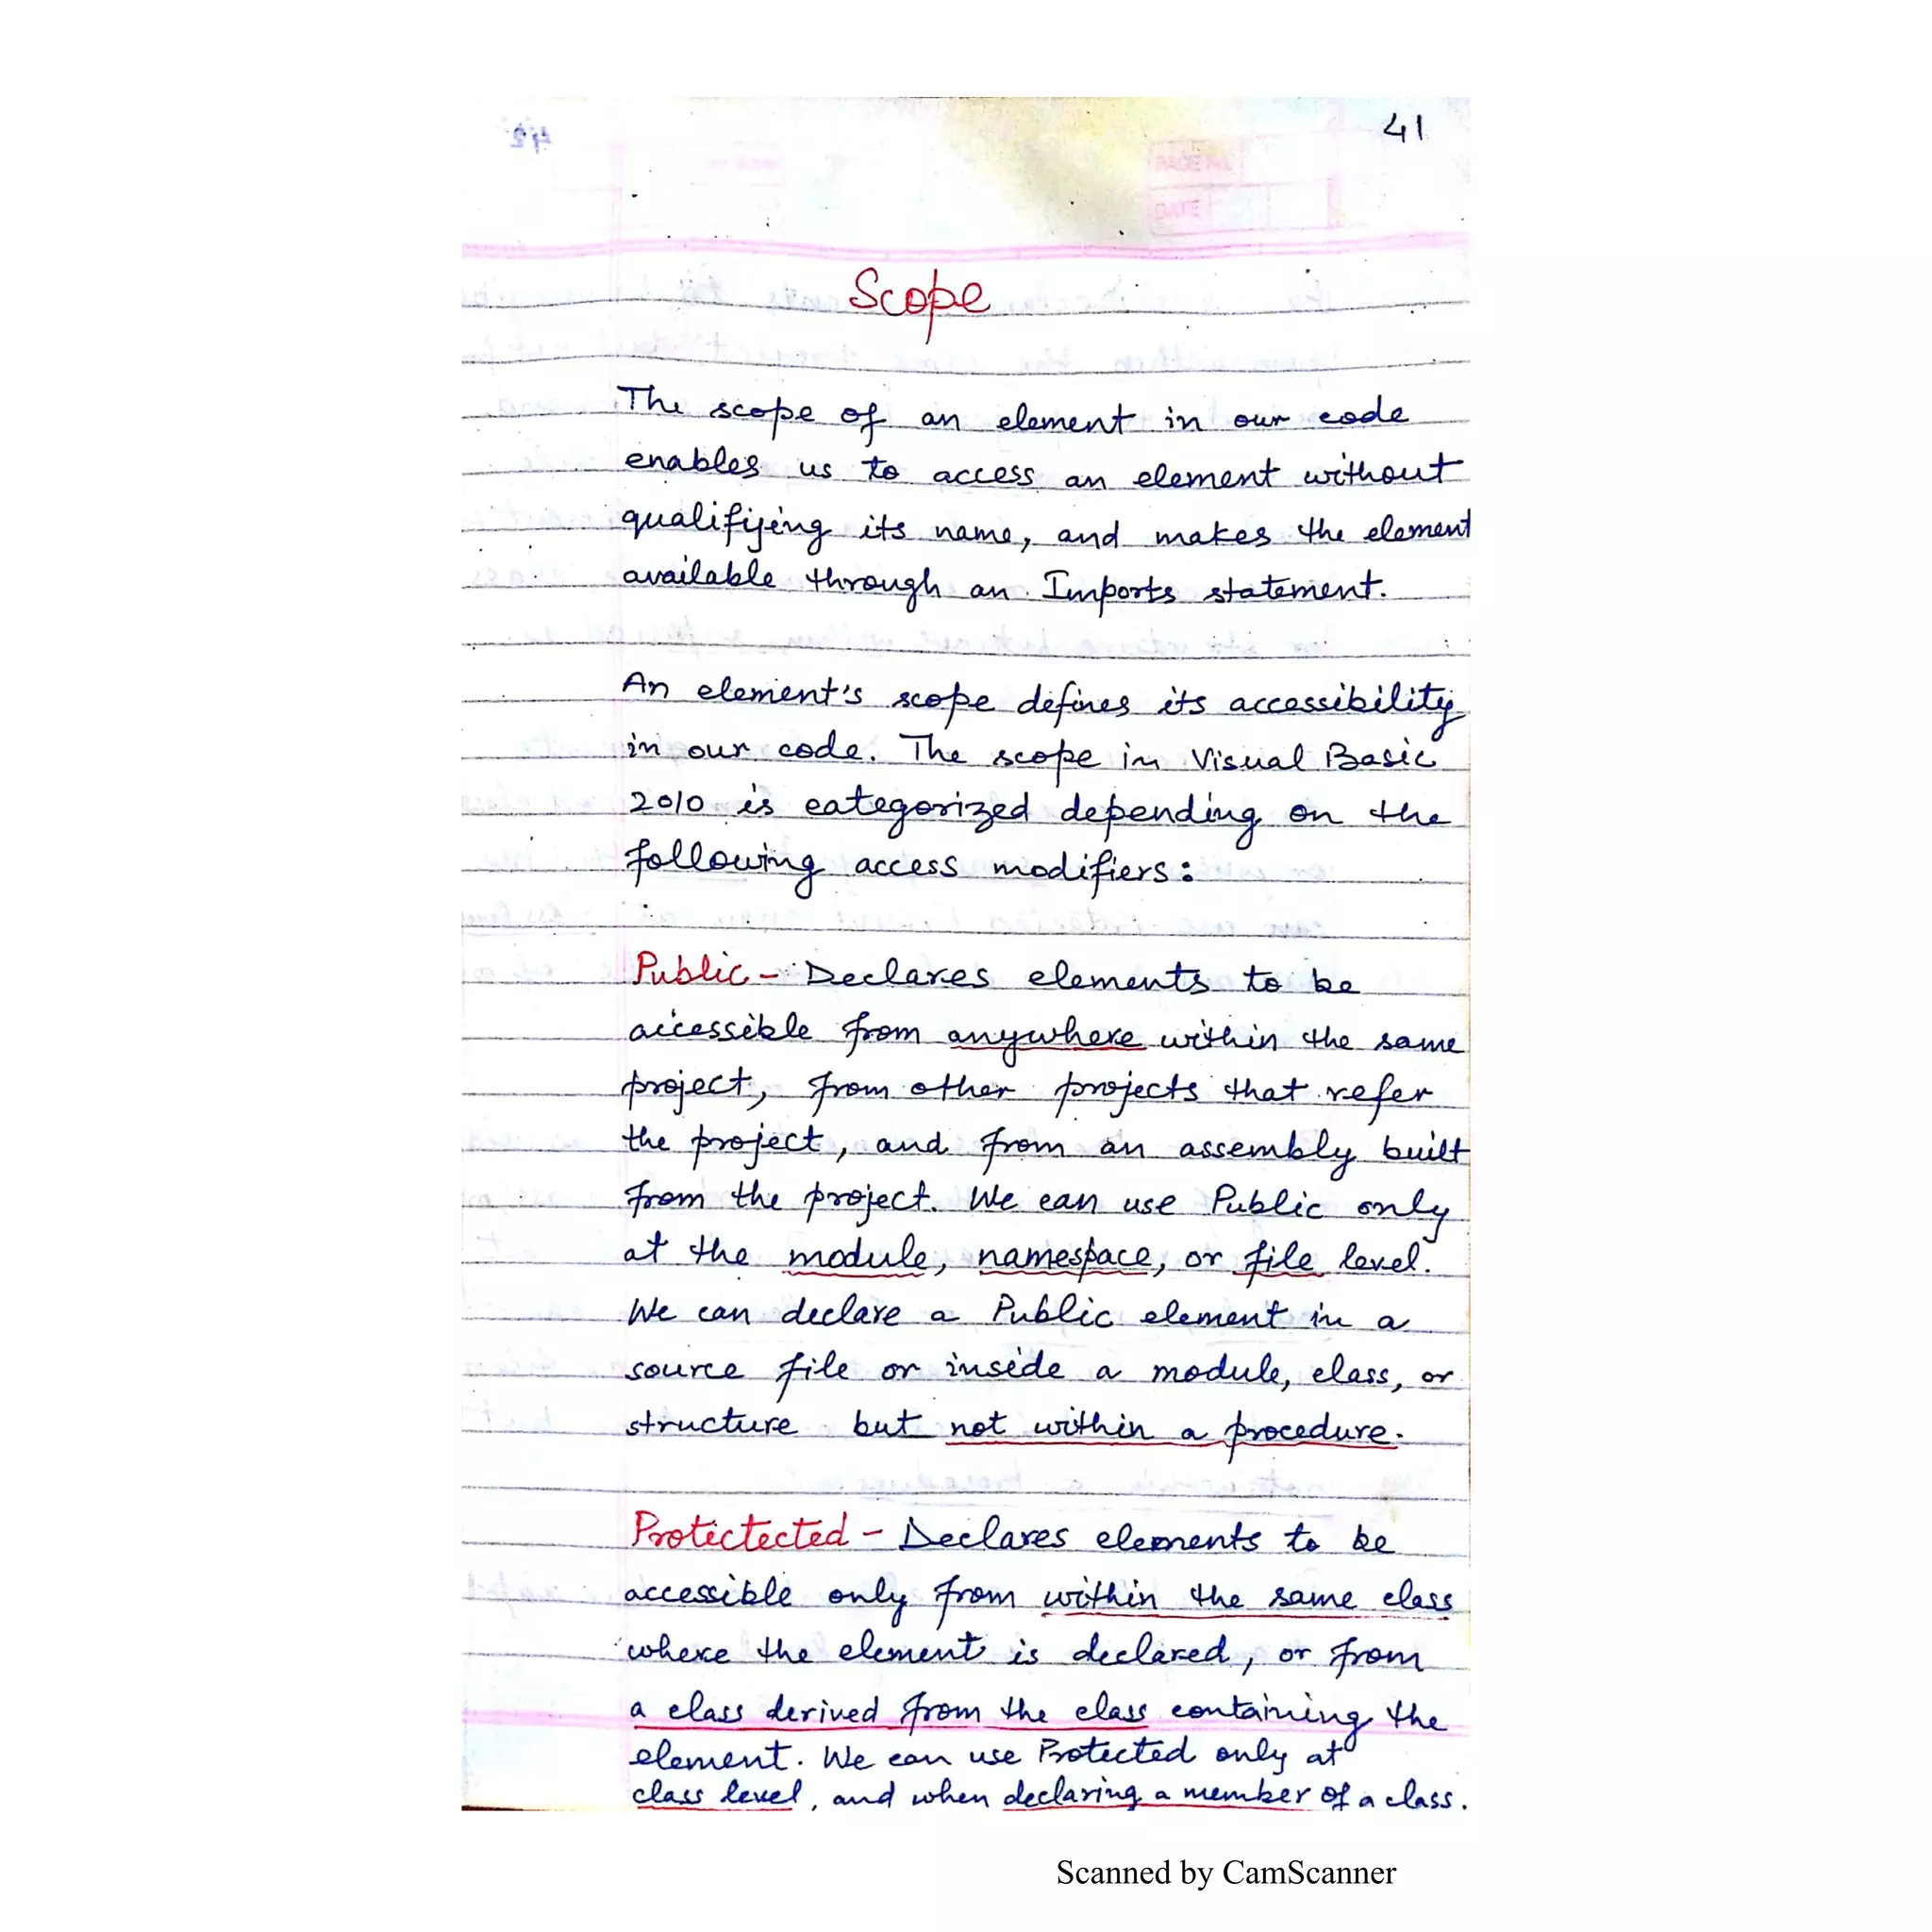 41
Scope
The scope of an element in our code
enables us to access an element without
qualifying its name, and makes the element
available through an Imports statement.
An element's scope defines its accessibility
in our code. The scope in Visual Basic
2010 is categorized depending on the
following access modifiers:
Public - Declares elements to be
accessible from anywhere within the same
project, from other projects that refer
the project, and from an assembly built
from the project. We can use Public only
at the module, namespace, or file level.
We can declare a Public element in a
source file or inside a module, class, or
structure but not within a procedure.
Protictected - Declares elements to be
accessible only from within the same class
where the element is declared, or from
a class derived from the class containing the
element. We can use Protected only at
class level, and when declaring a member of a class.
Scanned by CamScanner